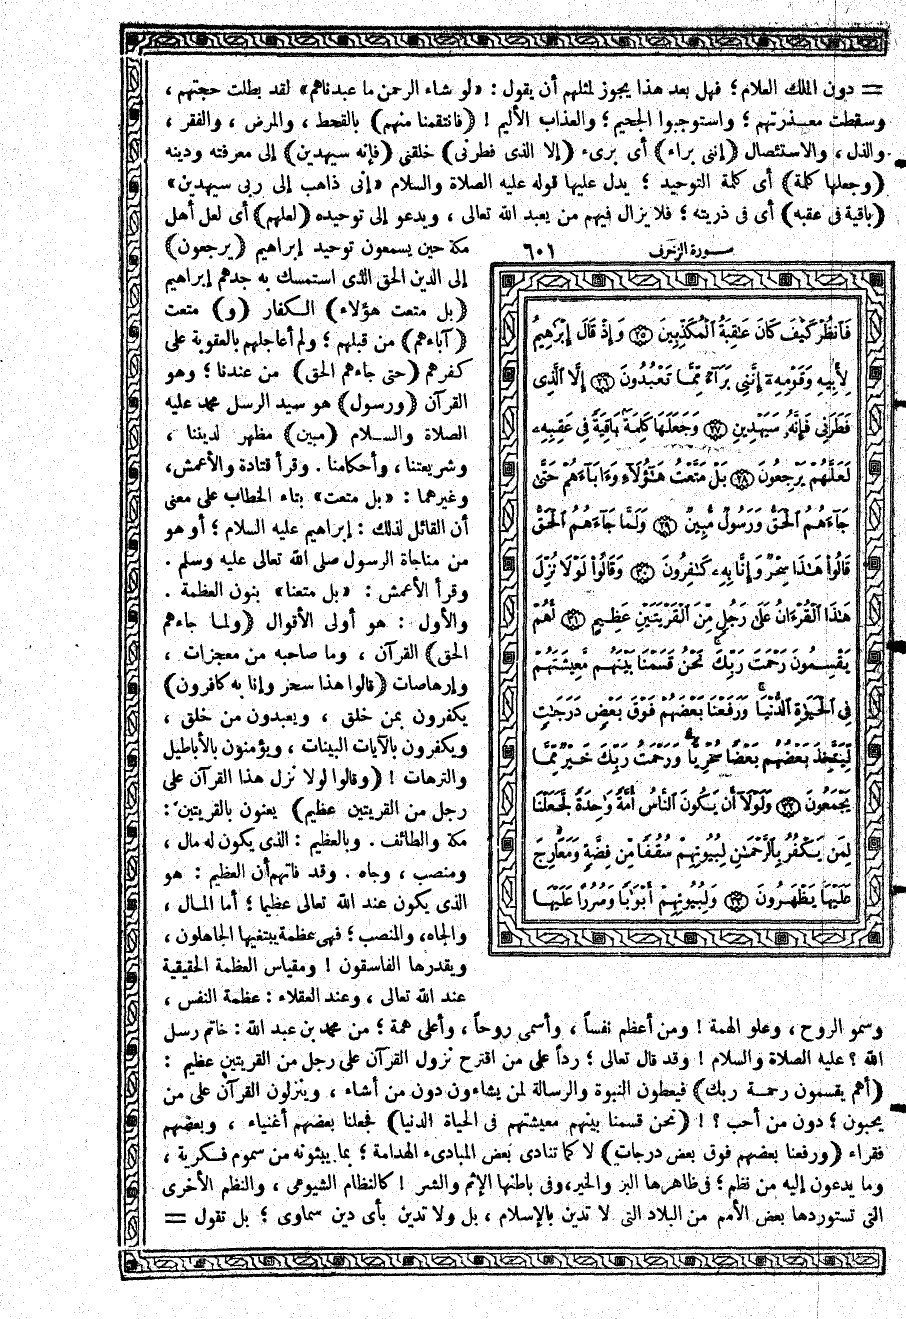 = دون الملك العلام؛ فهل بعد هذا يجوز لمثلهم أن يقول: «لو شاء الرحمن ما عبدناهم» لقد بطلت حجتهم،
وسقطت معـذرتهم؛ واستوجبوا الجحيم؛ والعذاب الأليم! (فانتقمنا منهم) بالقحط، والمرض، والفقر،
والذل، والاستئصال (إننى براء) أى برىء (إلا الذى فطرنى) خلقنى (فإنه سيهدين) إلى معرفته ودينه
(وجعلها كلمة) أى كلمة التوحيد؛ يدل عليها قوله عليه الصلاة والسلام «إنى ذاهب إلى ربى سيهدين»
(باقية فى عقبه) أى فى ذريته؛ فلا يزال فيهم من يعبد الله تعالى، ويدعو إلى توحيده (لعلهم) أى لعل أهل
مكة حين يسمعون توحيد إبراهيم (يرجعون)
إلى الدين الحق الذى استمسك به جدهم إبراهيم
(بل متعت هؤلاء) الكفار (و) متعت
(آباءهم) من قبلهم؛ ولم أعاجلهم بالعقوبة على
كفرهم (حتى جاءهم الحق) من عندنا؛ وهو
القرآن (ورسول) هو سيد الرسل محمد عليه
الصلاة والسلام (مبين) مظهر لديننا،
وشريعتنا، وأحكامنا. وقرأ قتادة والأعمش،
وغيرهما: «بل متعت» بتاء الخطاب على معنى
أن القائل لذلك: إبراهيم عليه السلام؛ أو هو
من مناجاة الرسول صلى الله تعالى عليه وسلم.
وقرأ الأعمش: «بل متعنا» بنون العظمة.
والأول: هو أولى الأقوال (ولما جاءهم
الحق) القرآن، وما صاحبه من معجزات،
وإرهاصات (قالوا هذا سحر وإنا به كافرون)
يكفرون بمن خلق، ويعبدون من خلق،
ويكفرون بالآيات البينات، ويؤمنون بالأباطيل
والترهات! (وقالوا لولا نزل هذا القرآن على
رجل من القريتين عظيم) يعنون بالقريتين:
مكة والطائف. وبالعظيم: الذى يكون له مال،
ومنصب، وجاه. وقد فاتهم أن العظيم: هو
الذى يكون عند الله تعالى عظيما؛ أما المال،
والجاه، والمنصب؛ فهى عظمة يبتغيها الجاهلون،
ويقدرها الفاسقون! ومقياس العظمة الحقيقية
عند الله تعالى، وعند العقلاء: عظمة النفس،
سورة الزخرف ٦٠١
فَٱنظُرْ كَيْفَ كَانَ عَٰقِبَةُ ٱلْمُكَذِّبِينَ ﴿٢٥﴾ وَإِذْ قَالَ إِبْرَٰهِيمُ
لِأَبِيهِ وَقَوْمِهِۦٓ إِنَّنِى بَرَآءٌ مِّمَّا تَعْبُدُونَ ﴿٢٦﴾ إِلَّا ٱلَّذِى
فَطَرَنِى فَإِنَّهُۥ سَيَهْدِينِ ﴿٢٧﴾ وَجَعَلَهَا كَلِمَةًۢ بَاقِيَةً فِى عَقِبِهِۦ
لَعَلَّهُمْ يَرْجِعُونَ ﴿٢٨﴾ بَلْ مَتَّعْتُ هَٰٓؤُلَآءِ وَءَابَآءَهُمْ حَتَّىٰ
جَآءَهُمُ ٱلْحَقُّ وَرَسُولٌ مُّبِينٌ ﴿٢٩﴾ وَلَمَّا جَآءَهُمُ ٱلْحَقُّ
قَالُوا۟ هَٰذَا سِحْرٌ وَإِنَّا بِهِۦ كَٰفِرُونَ ﴿٣٠﴾ وَقَالُوا۟ لَوْلَا نُزِّلَ
هَٰذَا ٱلْقُرْءَانُ عَلَىٰ رَجُلٍ مِّنَ ٱلْقَرْيَتَيْنِ عَظِيمٍ ﴿٣١﴾ أَهُمْ
يَقْسِمُونَ رَحْمَتَ رَبِّكَ ۚ نَحْنُ قَسَمْنَا بَيْنَهُم مَّعِيشَتَهُمْ
فِى ٱلْحَيَوٰةِ ٱلدُّنْيَا ۚ وَرَفَعْنَا بَعْضَهُمْ فَوْقَ بَعْضٍ دَرَجَٰتٍ
لِّيَتَّخِذَ بَعْضُهُم بَعْضًا سُخْرِيًّا ۗ وَرَحْمَتُ رَبِّكَ خَيْرٌ مِّمَّا
يَجْمَعُونَ ﴿٣٢﴾ وَلَوْلَآ أَن يَكُونَ ٱلنَّاسُ أُمَّةً وَٰحِدَةً لَّجَعَلْنَا
لِمَن يَكْفُرُ بِٱلرَّحْمَٰنِ لِبُيُوتِهِمْ سُقُفًا مِّن فِضَّةٍ وَمَعَارِجَ
عَلَيْهَا يَظْهَرُونَ ﴿٣٣﴾ وَلِبُيُوتِهِمْ أَبْوَٰبًا وَسُرُرًا عَلَيْهَا
وسمو الروح، وعلو الهمة! ومن أعظم نفساً، وأسمى روحاً، وأعلى همة؛ من محمد بن عبد الله: خاتم رسل
الله؟ عليه الصلاة والسلام! وقد قال تعالى؛ رداً على من اقترح نزول القرآن على رجل من القريتين عظيم:
(أهم يقسمون رحمة ربك) فيعطون النبوة والرسالة لمن يشاءون دون من أشاء، وينزلون القرآن على من
يحبون؛ دون من أحب؟! (نحن قسمنا بينهم معيشتهم فى الحياة الدنيا) فجعلنا بعضهم أغنياء، وبعضهم
فقراء (ورفعنا بعضهم فوق بعض درجات) لا كما تنادى بعض المبادىء الهدامة؛ بما يبثونه من سموم فكرية،
وما يدعون إليه من نظم؛ فى ظاهرها البر والخير، وفى باطنها الإثم والشر! كالنظام الشيوعى، والنظم الأخرى
التى تستوردها بعض الأمم من البلاد التى لا تدين بالإسلام، بل ولا تدين بأى دين سماوى؛ بل تقول =